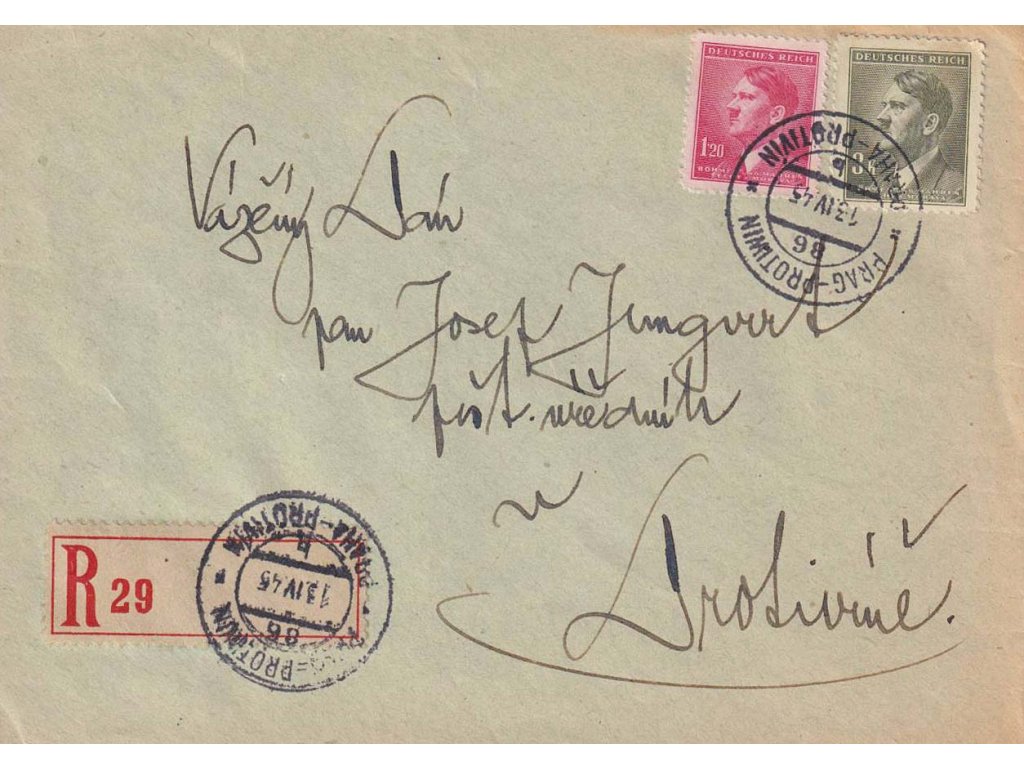 DEUTSCHES REICH
1·20
DEUTSCHES REICH
PRAG-PROTIWIN
PRAHA-PROTIVÍN
86
13.IV.45
Vážený Pán
pan Josef Jungvirt
pošt. úředník
v
Protivíně.
R 29
PRAG-PROTIWIN
PRAHA-PROTIVÍN
86
13.IV.45